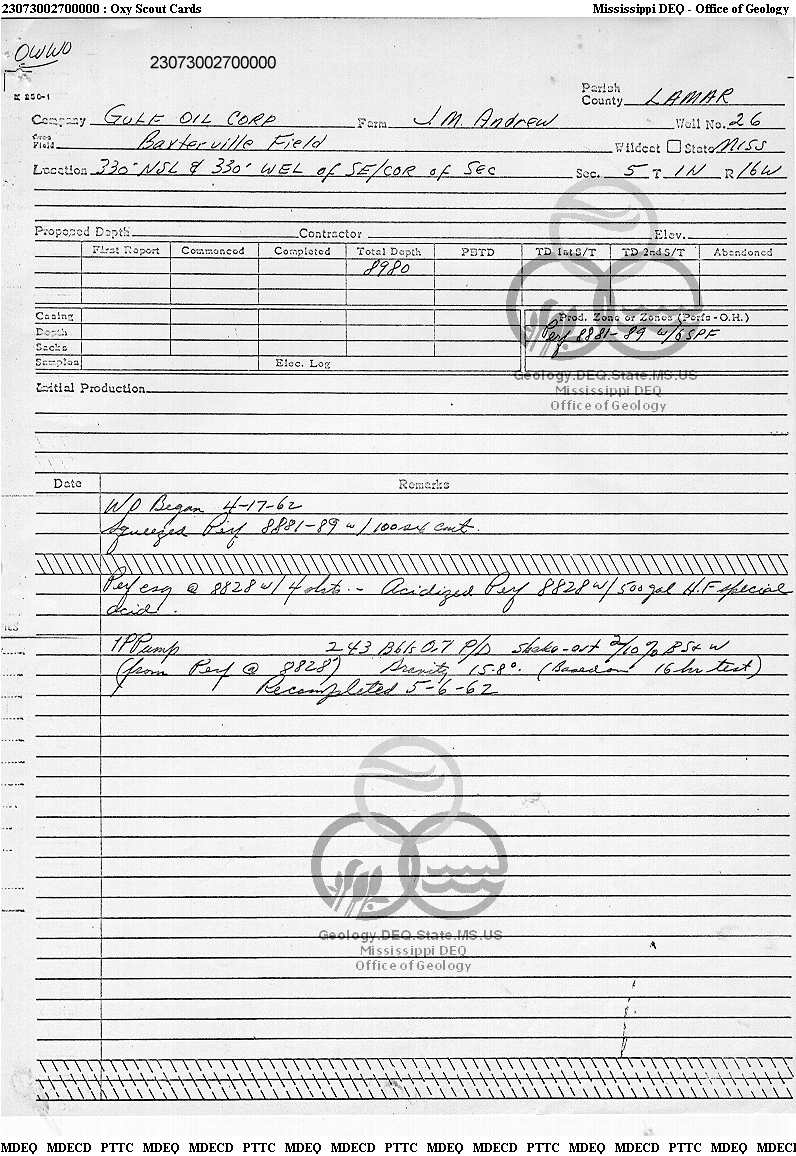 23073002700000 : Oxy Scout Cards Mississippi DEQ - Office of Geology
OWWO
23073002700000
K 250-1
Parish
County LAMAR
Company GULF OIL CORP Farm J.M. Andrew Well No. 26
Area
Field Baxterville Field Wildcat State MISS
Location 330' NSL & 330' WEL of SE/COR of SEC Sec. 5 T 1N R 16W
Proposed Depth Contractor Elev.
First Report Commenced Completed Total Depth PBTD TD 1st S/T TD 2nd S/T Abandoned
8980
Casing Prod. Zone or Zones (Perfs - O.H.)
Depth Perf 8881-89 w/6SPF
Sacks
Samples Elec. Log
Geology.DEQ.State.MS.US
Initial Production
Mississippi DEQ
Office of Geology
Date Remarks
WO Began 4-17-62
Squeezed Perf 8881-89 w/100 sx cmt.
Perf csg @ 8828 w/4 shts. - Acidized Perf 8828 w/500 gal H.F special
acid.
IP Pump 243 Bbls Oil P/D shake-out 2/10% BS&W
(from Perf @ 8828') Gravity 15.8°. (Based on 16 hr test)
Recompleted 5-6-62
Geology.DEQ.State.MS.US
Mississippi DEQ
Office of Geology
MDEQ MDECD PTTC MDEQ MDECD PTTC MDEQ MDECD PTTC MDEQ MDECD PTTC MDEQ MDECD PTTC MDEQ MDECD